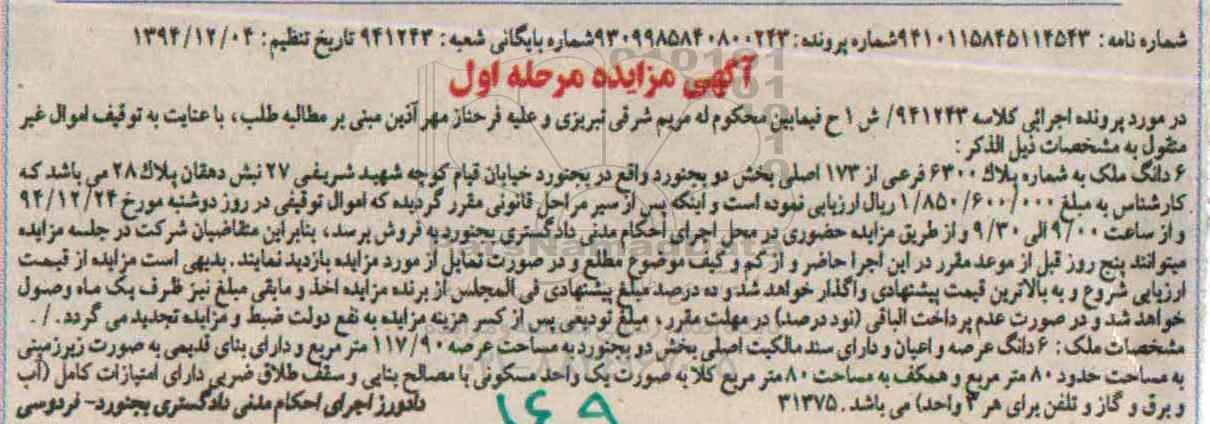 شماره نامه : ۹۴۱۰۱۱۵۸۴۵۱۱۴۵۴۳شماره پرونده: ۹۳۰۹۹۸۵۸۴۰۸۰۰۲۴۳شماره بایگانی شعبه : ۹۴۱۲۴۳ تاریخ تنظیم: ۱۳۹۴/۱۲/۰۴
آگهی مزایده مرحله اول
در مورد پرونده اجرائی کلاسه ۹۴۱۲۴۳/ ش ۱ ح فیمابین محکوم له مریم شرقی تبریزی و علیه فرحناز مهر آذین مبنی بر مطالبه طلب، با عنایت به توقیف اموال غیر
منقول به مشخصات ذیل الذکر :
۶ دانگ ملک به شماره پلاک ۶۳۰۰ فرعی از ۱۷۳ اصلی بخش دو بجنورد واقع در بجنورد خیابان قیام کوچه شهید شریفی ۲۷ نبش دهقان پلاک ۲۸ می باشد که
کارشناس به مبلغ ۱/۸۵۰/۶۰۰/۰۰۰ ریال ارزیابی نموده است و اینکه پس از سیر مراحل قانونی مقرر گردیده که اموال توقیفی در روز دوشنبه مورخ ۹۴/۱۲/۲۴
و از ساعت ۹/۰۰ الی ۹/۳۰ و از طریق مزایده حضوری در محل اجرای احکام مدنی دادگستری بجنورد به فروش برسد، بنابراین متقاضیان شرکت در جلسه مزایده
میتوانند پنج روز قبل از موعد مقرر در این اجرا حاضر و از کم و کیف موضوع مطلع و در صورت تمایل از مورد مزایده بازدید نمایند. بدیهی است مزایده از قیمت
ارزیابی شروع و به بالاترین قیمت پیشنهادی واگذار خواهد شد و ده درصد مبلغ پیشنهادی فی المجلس از برنده مزایده اخذ و مابقی مبلغ نیز ظرف یک ماه وصول
خواهد شد و در صورت عدم پرداخت الباقی (نود درصد) در مهلت مقرر، مبلغ تودیعی پس از کسر هزینه مزایده به نفع دولت ضبط و مزایده تجدید می گردد. / .
مشخصات ملک : ۶ دانگ عرصه و اعیان و دارای سند مالکیت اصلی بخش دو بجنورد به مساحت عرصه ۱۱۷/۹۰ متر مربع و دارای بنای قدیمی به صورت زیرزمینی
به مساحت حدود ۸۰ متر مربع و همکف به مساحت ۸۰ متر مربع کلا به صورت یک واحد مسکونی با مصالح بنایی و سقف طلاق ضربی دارای امتیازات کامل (آب
و برق و گاز و تلفن برای هر ۳ واحد) می باشد. ۳۱۳۷۵
دادورز اجرای احکام مدنی دادگستری بجنورد- فردوسی
۱۶۹